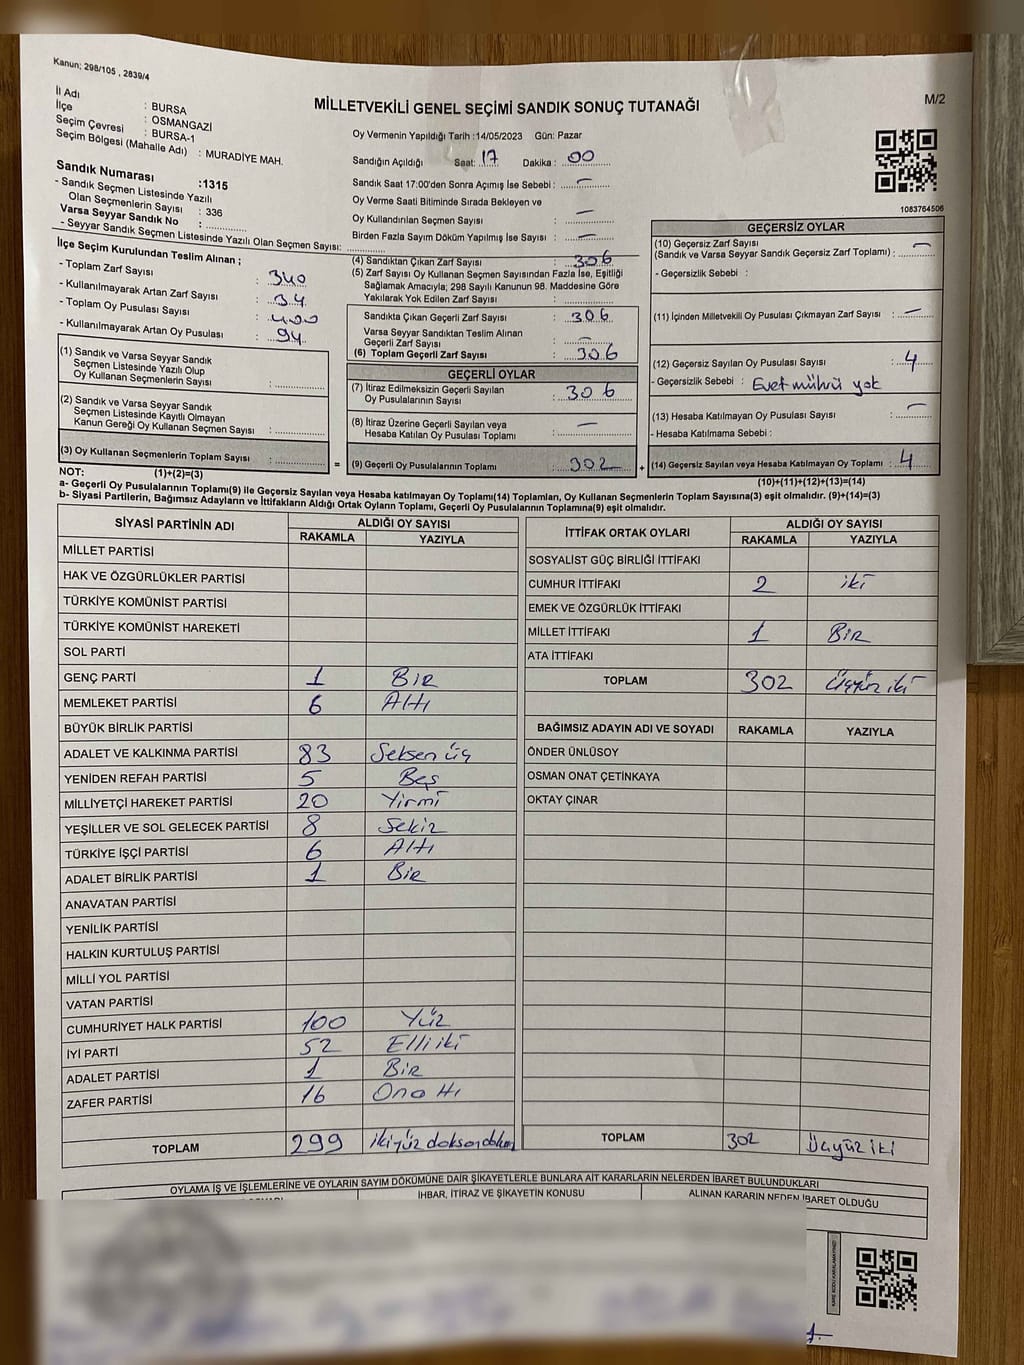 Kanun; 298/105 , 2839/4
İl Adı : BURSA
İlçe : OSMANGAZİ
Seçim Çevresi : BURSA-1
Seçim Bölgesi (Mahalle Adı) : MURADİYE MAH.
MİLLETVEKİLİ GENEL SEÇİMİ SANDIK SONUÇ TUTANAĞI
M/2
Oy Vermenin Yapıldığı Tarih :14/05/2023 Gün: Pazar
Sandığın Açıldığı Saat: 17 Dakika : 00
Sandık Saat 17:00'den Sonra Açımış İse Sebebi : –
Oy Verme Saati Bitiminde Sırada Bekleyen ve
Oy Kullandırılan Seçmen Sayısı : –
Birden Fazla Sayım Döküm Yapılmış İse Sayısı : –
1083764506
Sandık Numarası :1315
- Sandık Seçmen Listesinde Yazılı
Olan Seçmenlerin Sayısı : 336
Varsa Seyyar Sandık No :
- Seyyar Sandık Seçmen Listesinde Yazılı Olan Seçmen Sayısı:
İlçe Seçim Kurulundan Teslim Alınan ;
- Toplam Zarf Sayısı : 340
- Kullanılmayarak Artan Zarf Sayısı : 34
- Toplam Oy Pusulası Sayısı : 400
- Kullanılmayarak Artan Oy Pusulası : 94
(1) Sandık ve Varsa Seyyar Sandık
Seçmen Listesinde Yazılı Olup
Oy Kullanan Seçmenlerin Sayısı :
(2) Sandık ve Varsa Seyyar Sandık
Seçmen Listesinde Kayıtlı Olmayan
Kanun Gereği Oy Kullanan Seçmen Sayısı :
(3) Oy Kullanan Seçmenlerin Toplam Sayısı :
(4) Sandıktan Çıkan Zarf Sayısı : 306
(5) Zarf Sayısı Oy Kullanan Seçmen Sayısından Fazla İse, Eşitliği
Sağlamak Amacıyla; 298 Sayılı Kanunun 98. Maddesine Göre
Yakılarak Yok Edilen Zarf Sayısı :
Sandıkta Çıkan Geçerli Zarf Sayısı : 306
Varsa Seyyar Sandıktan Teslim Alınan
Geçerli Zarf Sayısı : –
(6) Toplam Geçerli Zarf Sayısı : 306
GEÇERLİ OYLAR
(7) İtiraz Edilmeksizin Geçerli Sayılan
Oy Pusulalarının Sayısı : 306
(8) İtiraz Üzerine Geçerli Sayılan veya
Hesaba Katılan Oy Pusulası Toplamı : –
= (9) Geçerli Oy Pusulalarının Toplamı : 302 +
GEÇERSİZ OYLAR
(10) Geçersiz Zarf Sayısı
(Sandık ve Varsa Seyyar Sandık Geçersiz Zarf Toplamı) : –
- Geçersizlik Sebebi :
(11) İçinden Milletvekili Oy Pusulası Çıkmayan Zarf Sayısı : –
(12) Geçersiz Sayılan Oy Pusulası Sayısı : 4
- Geçersizlik Sebebi : Evet mührü yok
(13) Hesaba Katılmayan Oy Pusulası Sayısı : –
- Hesaba Katılmama Sebebi :
(14) Geçersiz Sayılan veya Hesaba Katılmayan Oy Toplamı : 4
NOT: (1)+(2)=(3)
(10)+(11)+(12)+(13)=(14)
a- Geçerli Oy Pusulalarının Toplamı(9) ile Geçersiz Sayılan veya Hesaba katılmayan Oy Toplamı(14) Toplamları, Oy Kullanan Seçmenlerin Toplam Sayısına(3) eşit olmalıdır. (9)+(14)=(3)
b- Siyasi Partilerin, Bağımsız Adayların ve İttifakların Aldığı Ortak Oyların Toplamı, Geçerli Oy Pusulalarının Toplamına(9) eşit olmalıdır.
SİYASİ PARTİNİN ADI ALDIĞI OY SAYISI
RAKAMLA YAZIYLA
MİLLET PARTİSİ
HAK VE ÖZGÜRLÜKLER PARTİSİ
TÜRKİYE KOMÜNİST PARTİSİ
TÜRKİYE KOMÜNİST HAREKETİ
SOL PARTİ
GENÇ PARTİ 1 Bir
MEMLEKET PARTİSİ 6 Altı
BÜYÜK BİRLİK PARTİSİ
ADALET VE KALKINMA PARTİSİ 83 Seksen üç
YENİDEN REFAH PARTİSİ 5 Beş
MİLLİYETÇİ HAREKET PARTİSİ 20 Yirmi
YEŞİLLER VE SOL GELECEK PARTİSİ 8 Sekiz
TÜRKİYE İŞÇİ PARTİSİ 6 Altı
ADALET BİRLİK PARTİSİ 1 Bir
ANAVATAN PARTİSİ
YENİLİK PARTİSİ
HALKIN KURTULUŞ PARTİSİ
MİLLİ YOL PARTİSİ
VATAN PARTİSİ
CUMHURİYET HALK PARTİSİ 100 Yüz
İYİ PARTİ 52 Elli iki
ADALET PARTİSİ 1 Bir
ZAFER PARTİSİ 16 Onaltı
TOPLAM 299 ikiyüz doksandokuz
İTTİFAK ORTAK OYLARI ALDIĞI OY SAYISI
RAKAMLA YAZIYLA
SOSYALİST GÜÇ BİRLİĞİ İTTİFAKI
CUMHUR İTTİFAKI 2 iki
EMEK VE ÖZGÜRLÜK İTTİFAKI
MİLLET İTTİFAKI 1 Bir
ATA İTTİFAKI
TOPLAM 302 Üçyüz iki
BAĞIMSIZ ADAYIN ADI VE SOYADI RAKAMLA YAZIYLA
ÖNDER ÜNLÜSOY
OSMAN ONAT ÇETİNKAYA
OKTAY ÇINAR
TOPLAM 302 Üçyüz iki
OYLAMA İŞ VE İŞLEMLERİNE VE OYLARIN SAYIM DÖKÜMÜNE DAİR ŞİKAYETLERLE BUNLARA AİT KARARLARIN NELERDEN İBARET BULUNDUKLARI
İHBAR, İTİRAZ VE ŞİKAYETİN KONUSU ALINAN KARARIN NEDEN İBARET OLDUĞU
KARE KODU KARALAMAYINIZ!